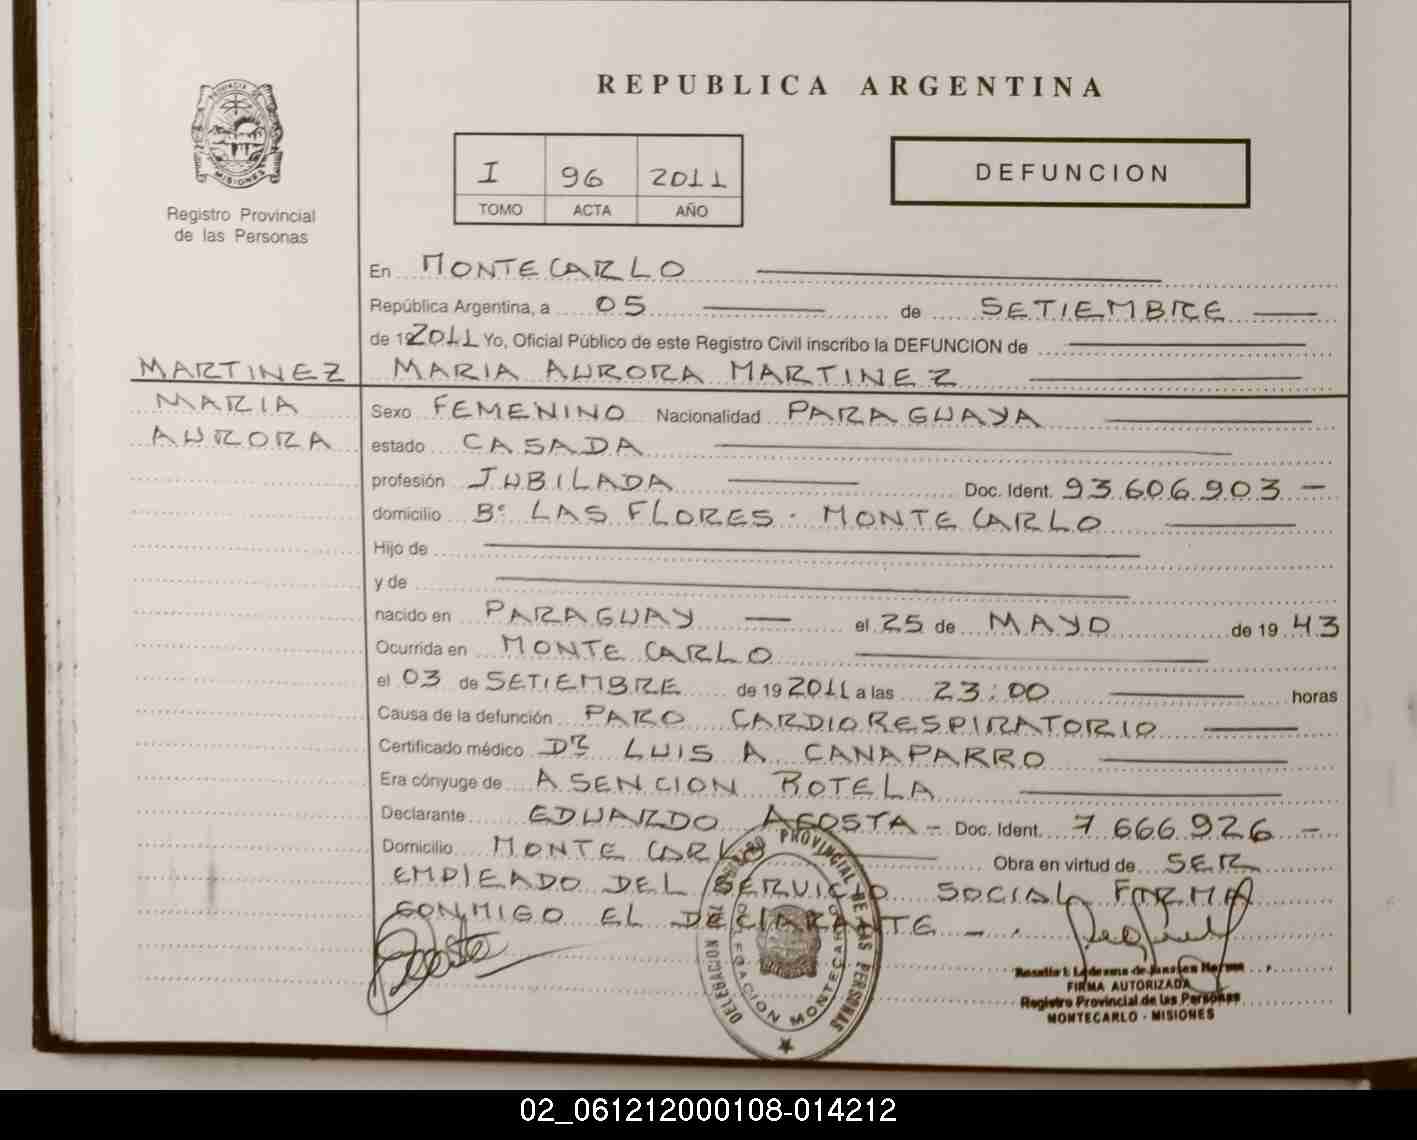 REPUBLICA ARGENTINA
PROVINCIA DE
MISIONES
Registro Provincial
de las Personas
I 96 2011
TOMO ACTA AÑO
DEFUNCION
En MONTECARLO
República Argentina, a 05 de SETIEMBRE
de 192011 Yo, Oficial Público de este Registro Civil inscribo la DEFUNCION de
MARTINEZ MARIA AURORA MARTINEZ
MARIA
AURORA
Sexo FEMENINO Nacionalidad PARAGUAYA
estado CASADA
profesión JUBILADA Doc. Ident. 93.606.903 —
domicilio Bº LAS FLORES - MONTECARLO
Hijo de
y de
nacido en PARAGUAY — el 25 de MAYO de 19 43
Ocurrida en MONTE CARLO
el 03 de SETIEMBRE de 19 2011 a las 23:00 horas
Causa de la defunción PARO CARDIORESPIRATORIO
Certificado médico Dr LUIS A CANAPARRO
Era cónyuge de ASENCION ROTELA
Declarante EDUARDO AGOSTA - Doc. Ident. 7 666.926 —
Domicilio MONTE CARLO Obra en virtud de SER
EMPLEADO DEL SERVICIO SOCIAL FORMA
CONMIGO EL DECLARANTE - .
REGISTRO PROVINCIAL DE LAS PERSONAS
DELEGACION MONTECARLO
FIRMA AUTORIZADA
Registro Provincial de las Personas
MONTECARLO - MISIONES
02_061212000108-014212